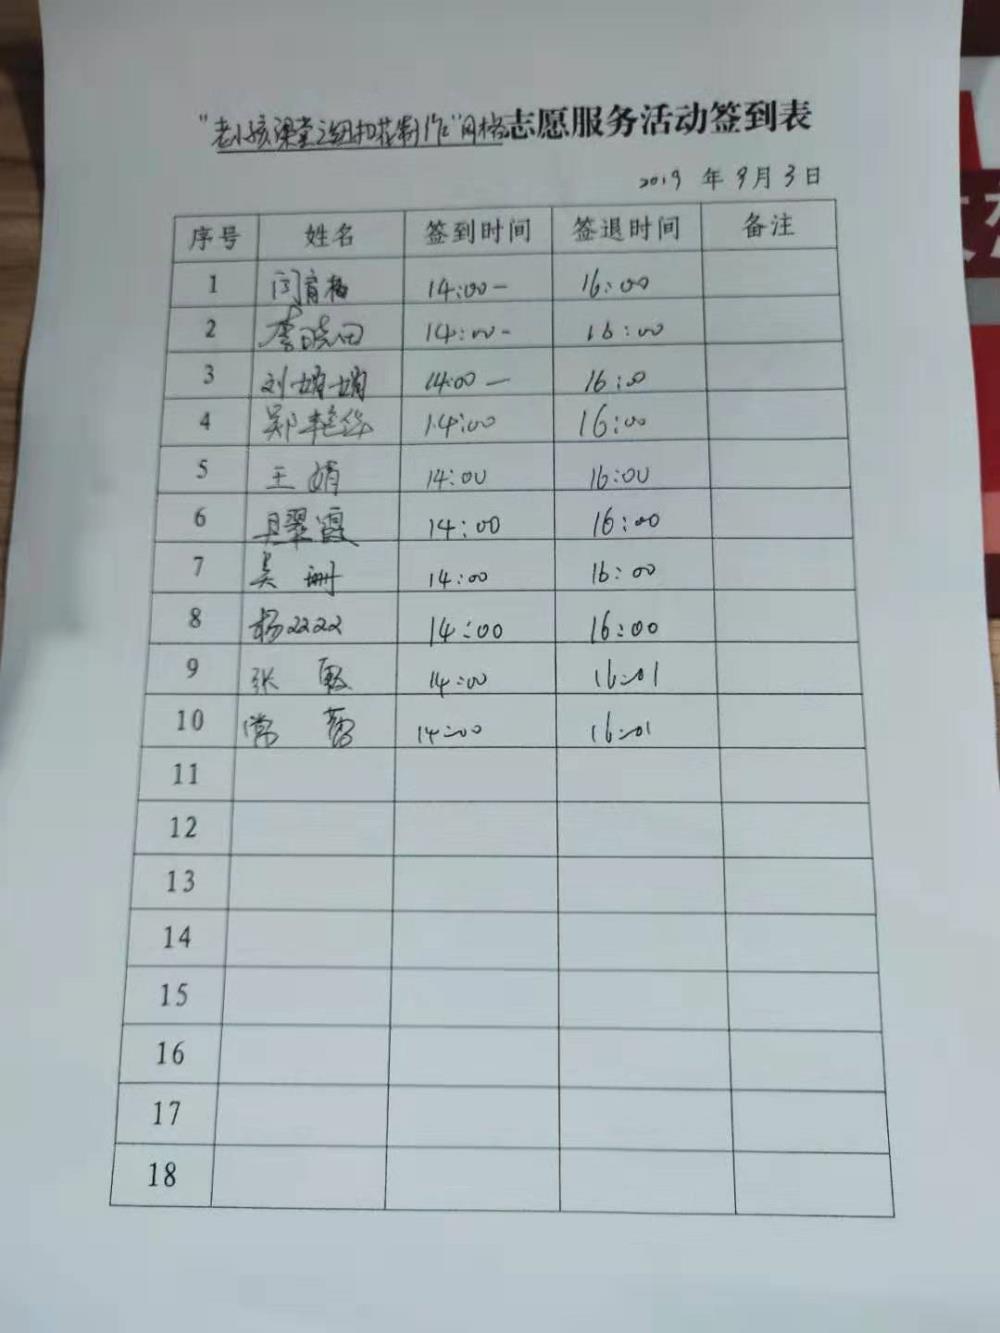 "老小孩课堂之纽扣花制作"网格志愿服务活动签到表
2019 年 9 月 3 日
序号 姓名 签到时间 签退时间 备注
1 闫育梅 14:00- 16:00
2 李晓田 14:00- 16:00
3 刘娟娟 14:00- 16:00
4 郑艳华 14:00 16:00
5 王娟 14:00 16:00
6 翠霞 14:00 16:00
7 吴珊 14:00 16:00
8 杨双双 14:00 16:00
9 张敏 14:00 16:01
10 常 14:00 16:01
11
12
13
14
15
16
17
18